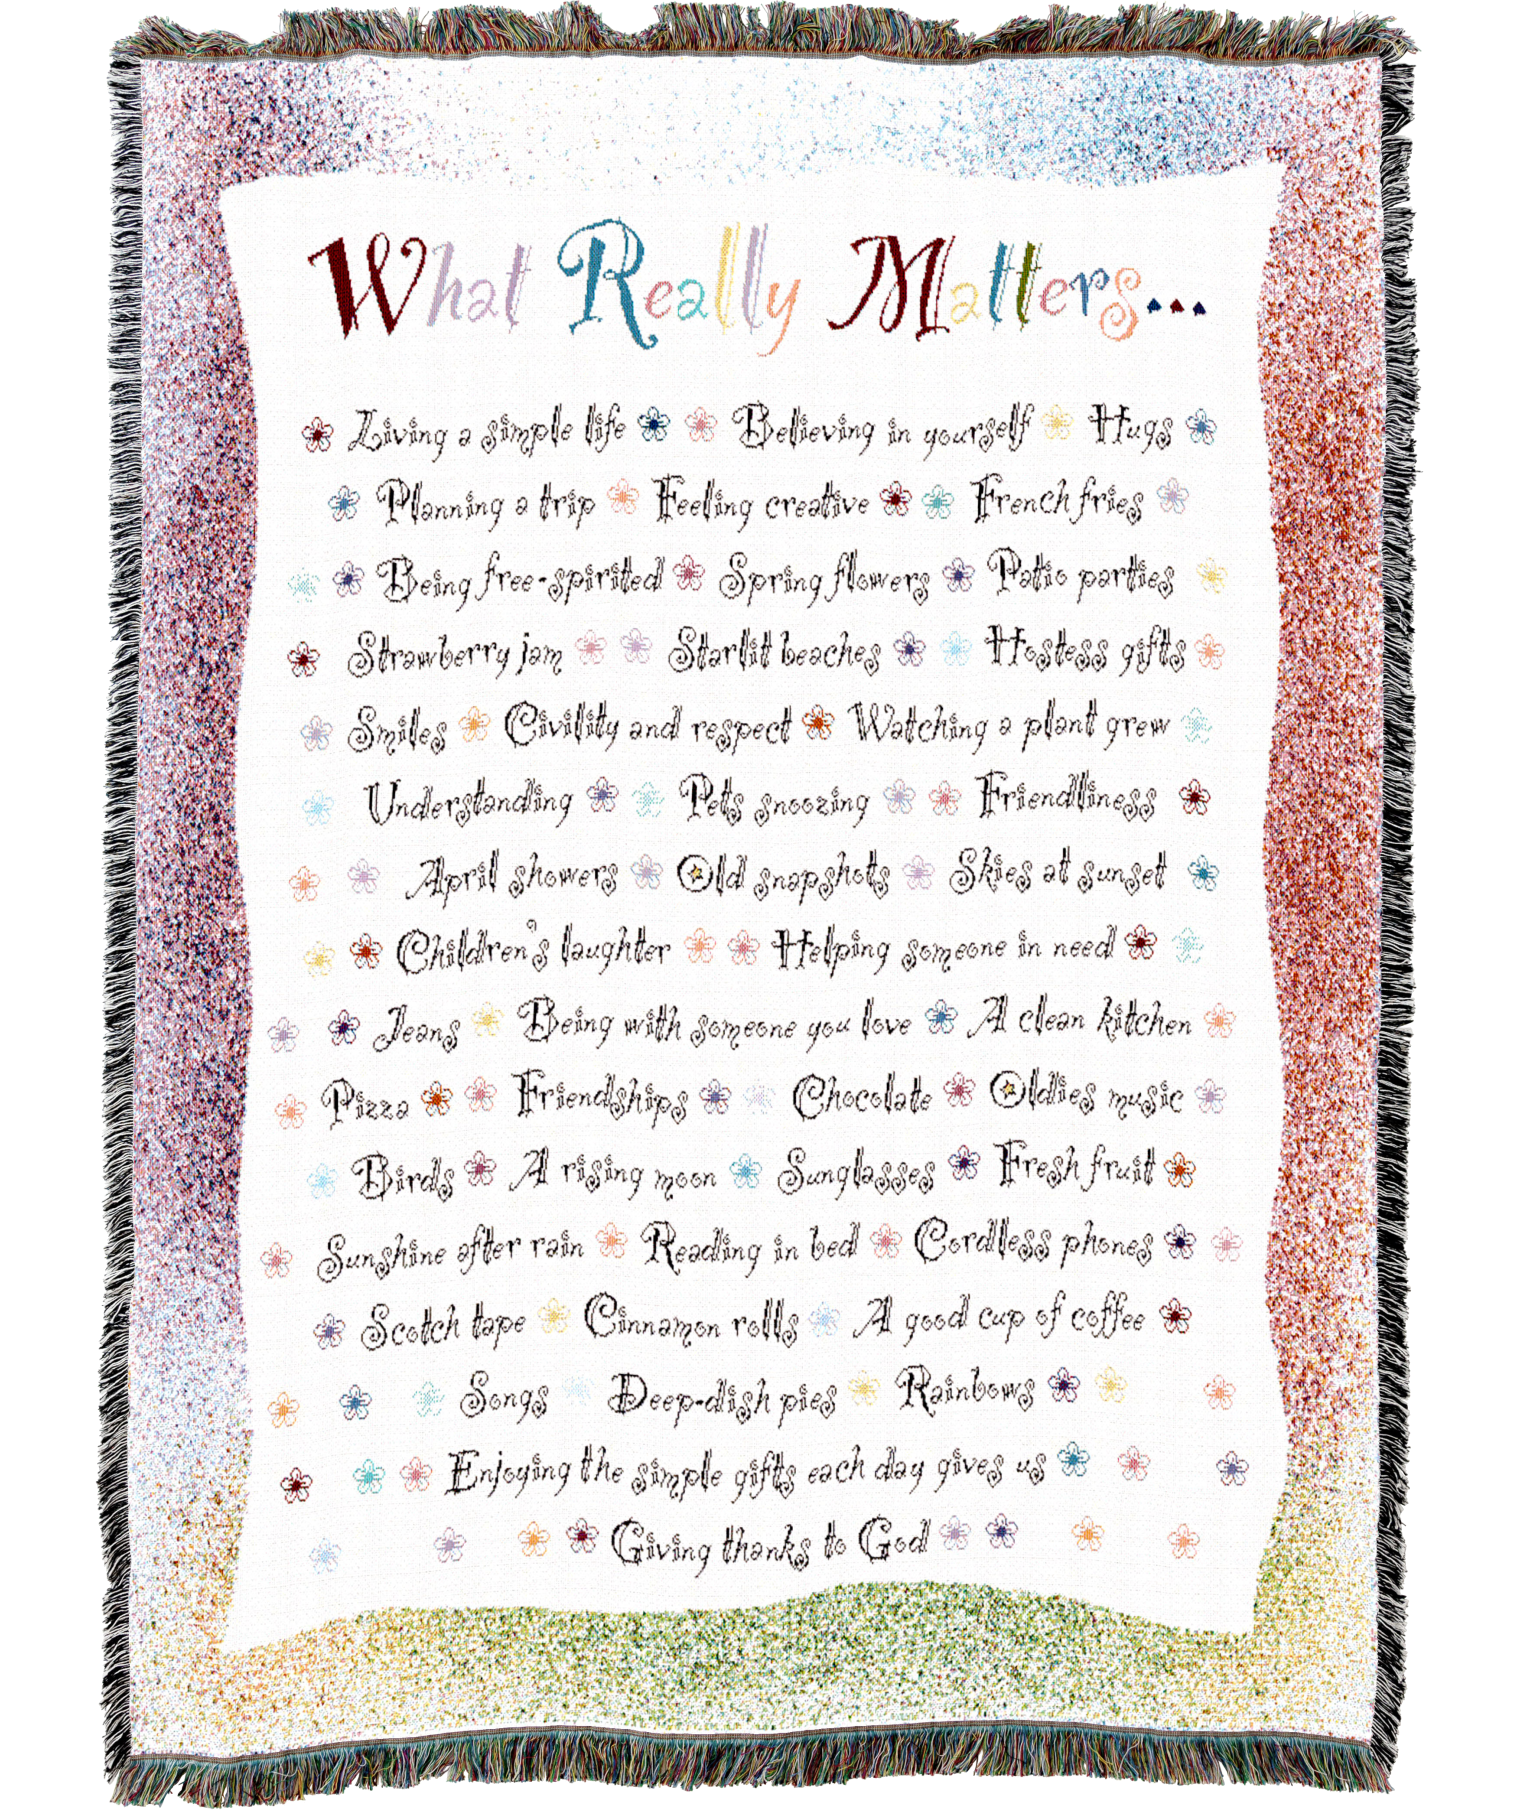 What Really Matters...
Living a simple life Believing in yourself Hugs
Planning a trip Feeling creative French fries
Being free-spirited Spring flowers Patio parties
Strawberry jam Starlit beaches Hostess gifts
Smiles Civility and respect Watching a plant grow
Understanding Pets snoozing Friendliness
April showers Old snapshots Skies at sunset
Children's laughter Helping someone in need
Jeans Being with someone you love A clean kitchen
Pizza Friendships Chocolate Oldies music
Birds A rising moon Sunglasses Fresh fruit
Sunshine after rain Reading in bed Cordless phones
Scotch tape Cinnamon rolls A good cup of coffee
Songs Deep-dish pies Rainbows
Enjoying the simple gifts each day gives us
Giving thanks to God